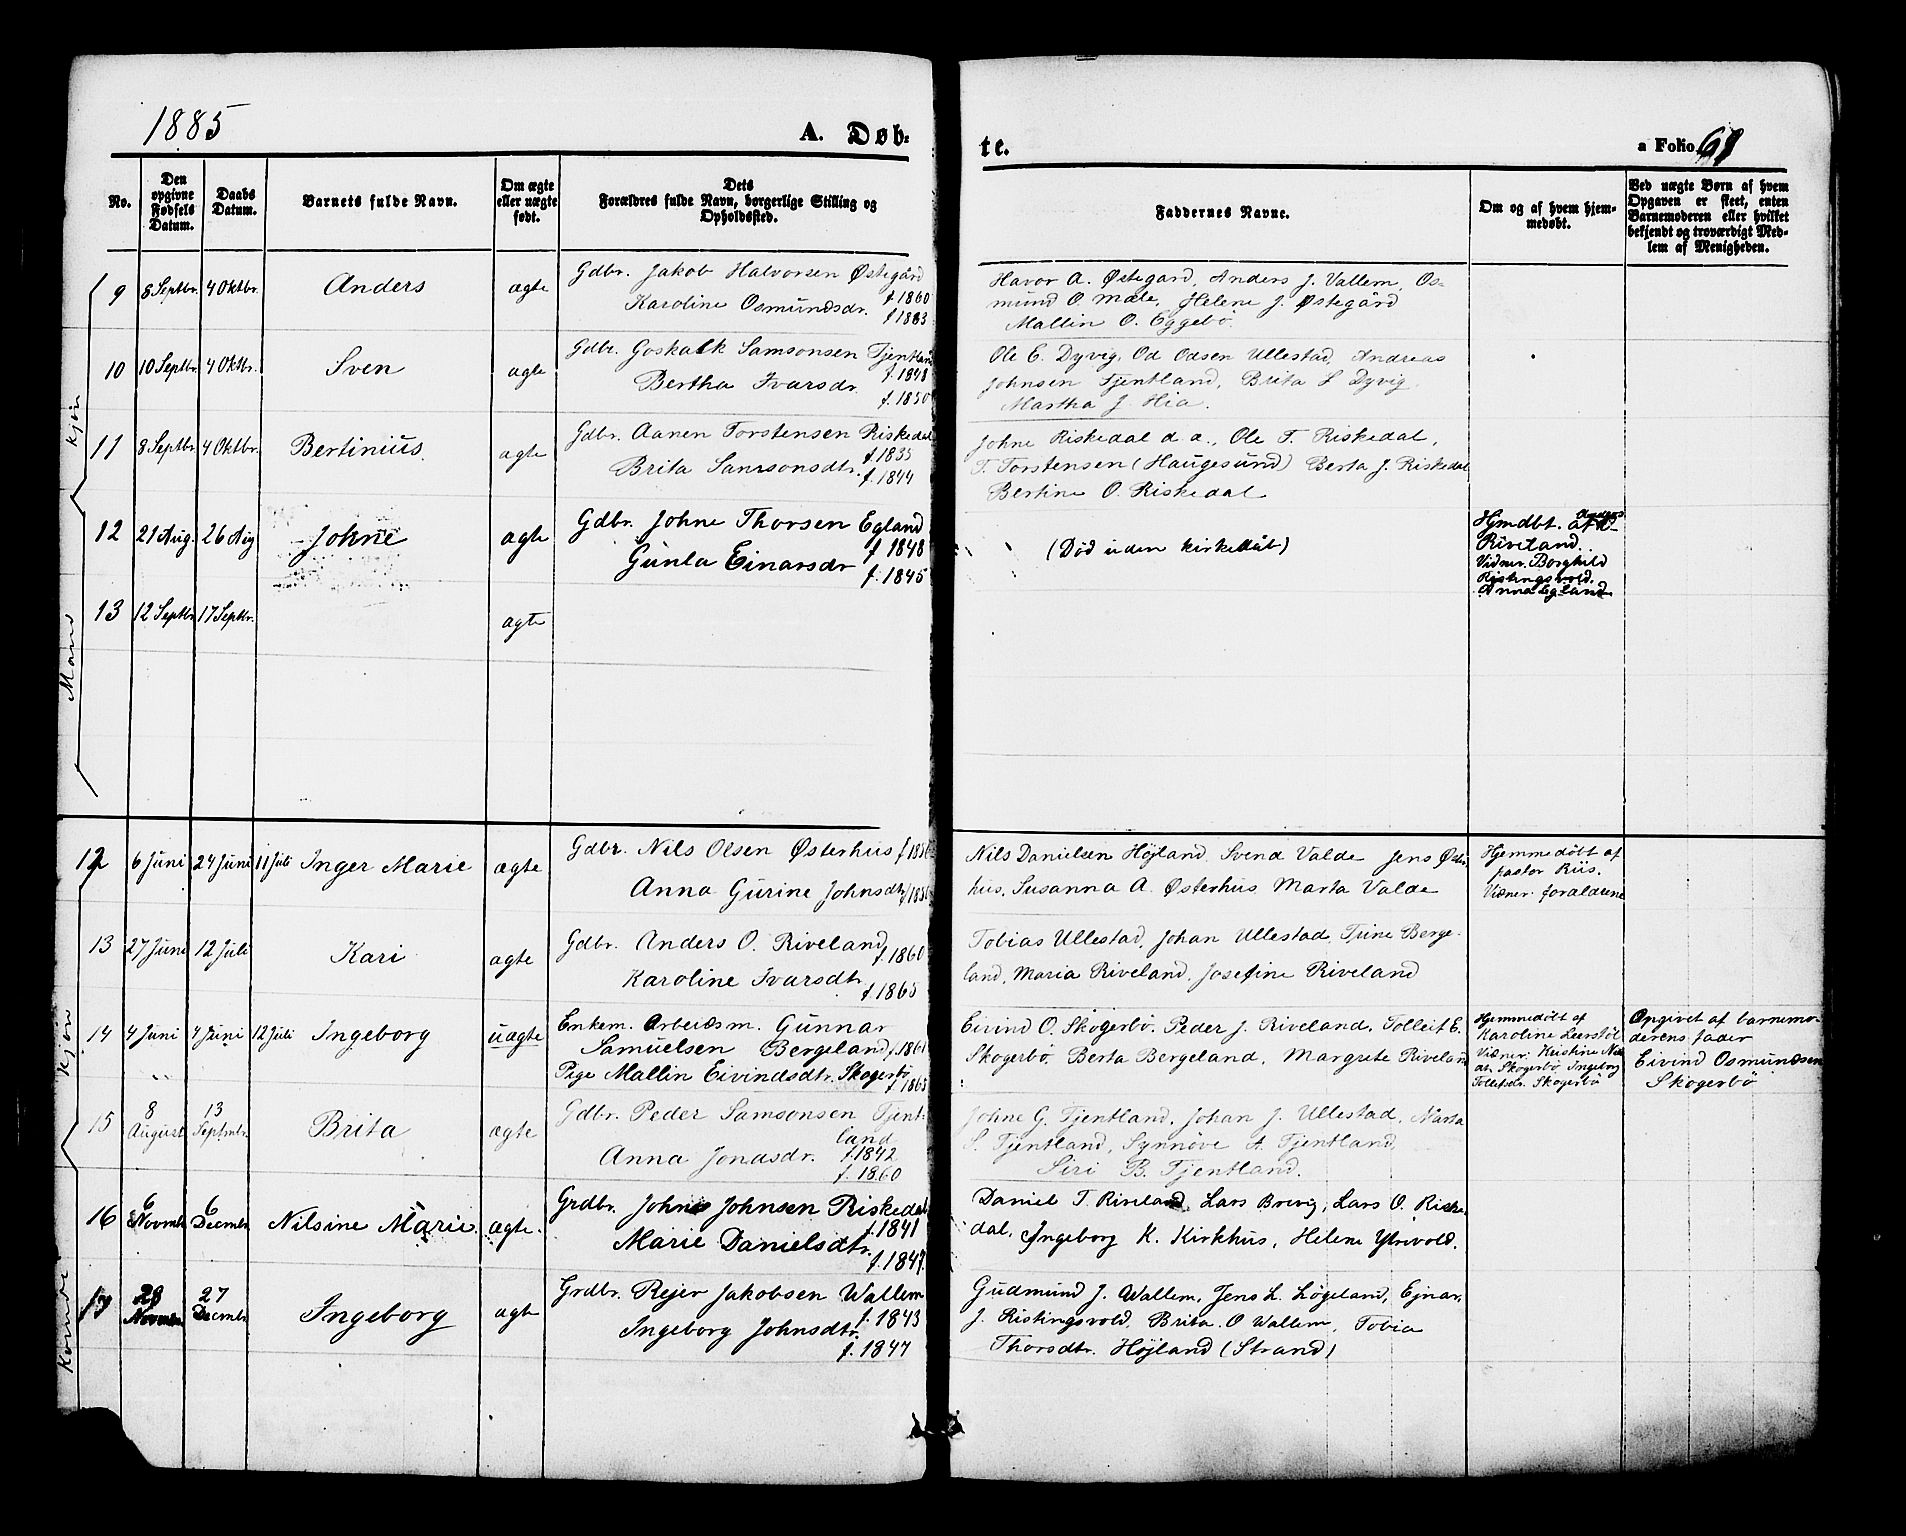 1885
A. Døb-
te.
a Folio 61
No.
Den opgivne Fødsels Datum.
Daabs Datum.
Barnets fulde Navn.
Om ægte eller uægte født.
Dets Forældres fulde Navn, borgerlige Stilling og Opholdssted.
Faddernes Navne.
Om og af hvem hjemmedøbt.
Ved uægte Børn af hvem Opgaven er skeet, enten Barnemoderen eller hvilket bekjendt og troværdigt Medlem af Menigheden.
Mand kjön
9 8 Septbr. 4 Oktbr. Anders ægte Gdbr. Jakob Halvorsen Østegård f 1860
Karoline Osmundsdr. f 1883
Havor A. Østegard, Anders J. Vallem, Os-
mund O Mæle, Helene J. Østegård
Mallin O. Eggebö.
10 10 Septbr. 4 Oktbr. Sven ægte Gdbr. Goskalk Samsonsen Tjentland f. 1848
Bertha Ivarsdr. f. 1850
Ole E. Dyvig, Od Odsen Ullestad, Andreas
Johnsen Tjentland, Brita S Dyvig.
Martha J. Hia.
11 8 Septbr 4 Oktbr. Bertinius. ægte Gdbr. Aanen Torstensen Riskedal f. 1835
Brita Samsonsdtr. f. 1844
Johne Riskedal d a., Ole T. Riskedal,
T. Torstensen (Haugesund) Berta J. Riskedal
Bertine O. Riskedal
12 21 Aug. 26 Aug Johne ægte Gdbr. Johne Thorsen Egland f 1848
Gunla Einarsdr f. 1845
(Død uden kirkedåb)
Hjmdbt. af Anders
Riveland.
Vidner. Borghild
Ristingsvold.
Anna Egland
13 12 Septbr 17 Septbr. ægte
Kvinde kjön
12 6 Juni 24 Juni 11 Juli Inger Marie ægte Gdbr. Nils Olsen Østerhus f 1856
Anna Gurine Johnsdtr f 1856
Nils Danielsen Höjland. Svend Valde Jens Øster-
hus, Susanna A. Østerhus Marta Valde
Hjemmedöbt af
pastor Riis.
Vidner: forældrene
13 27 Juni 12 Juli Kari ægte Gdbr. Anders O. Riveland f. 1860
Karoline Ivarsdtr. f. 1865
Tobias Ullestad, Johan Ullestad, Trine Berge-
land, Maria Riveland, Josefine Riveland
14 4 Juni 7 Juni 12 Juli Ingeborg uægte Enkem. Arbeidsm. Gunnar
Samuelsen Bergeland f. 1861
Pige Mallin Eivindsdtr. Skogerbö f 1863
Eivind O. Skogerbö. Peder J. Riveland. Tolleit E.
Skogerbö Berta Bergeland, Margrete Riveland
Hjemmedöbt af
Karoline Leerstöl
Vidner: Kristine Nils-
dt. Skogerbö Ingeborg
Tollefsdr. Skogerbö
Opgivet af barnemo-
derens fader
Eivind Osmundsen
Skogerbö
15 8 August 13 Septmbr. Brita ægte Gdbr. Peder Samsonsen Tjent-
land f. 1842
Anna Jonasdr. f. 1860
Johne G. Tjentland, Johan J. Ullestad, Marta
S. Tjentland, Synnöve A. Tjentland,
Siri B. Tjentland.
16 6 Novmbr 6 Decmbr Nilsine Marie ægte. Grdbr. Johnis Johnsen Riskedal f. 1841
Marie Danielsdtr. f. 1847
Daniel T. Riveland, Lars Brevig, Lars O. Riske-
dal, Ingeborg K. Kirkhus, Helene Ytrivold.
17 28 Novmbr 27 Decmbr Ingeborg ægte Grdbr. Rejer Jakobsen Wallem f. 1843
Ingeborg Johnsdtr. f. 1847
Gudmund J. Wallem, Jens L. Lögeland, Ejnar
J. Ristingsvold, Brita. O Wallem, Tobia
Thorsdtr. Höjland (Strand)